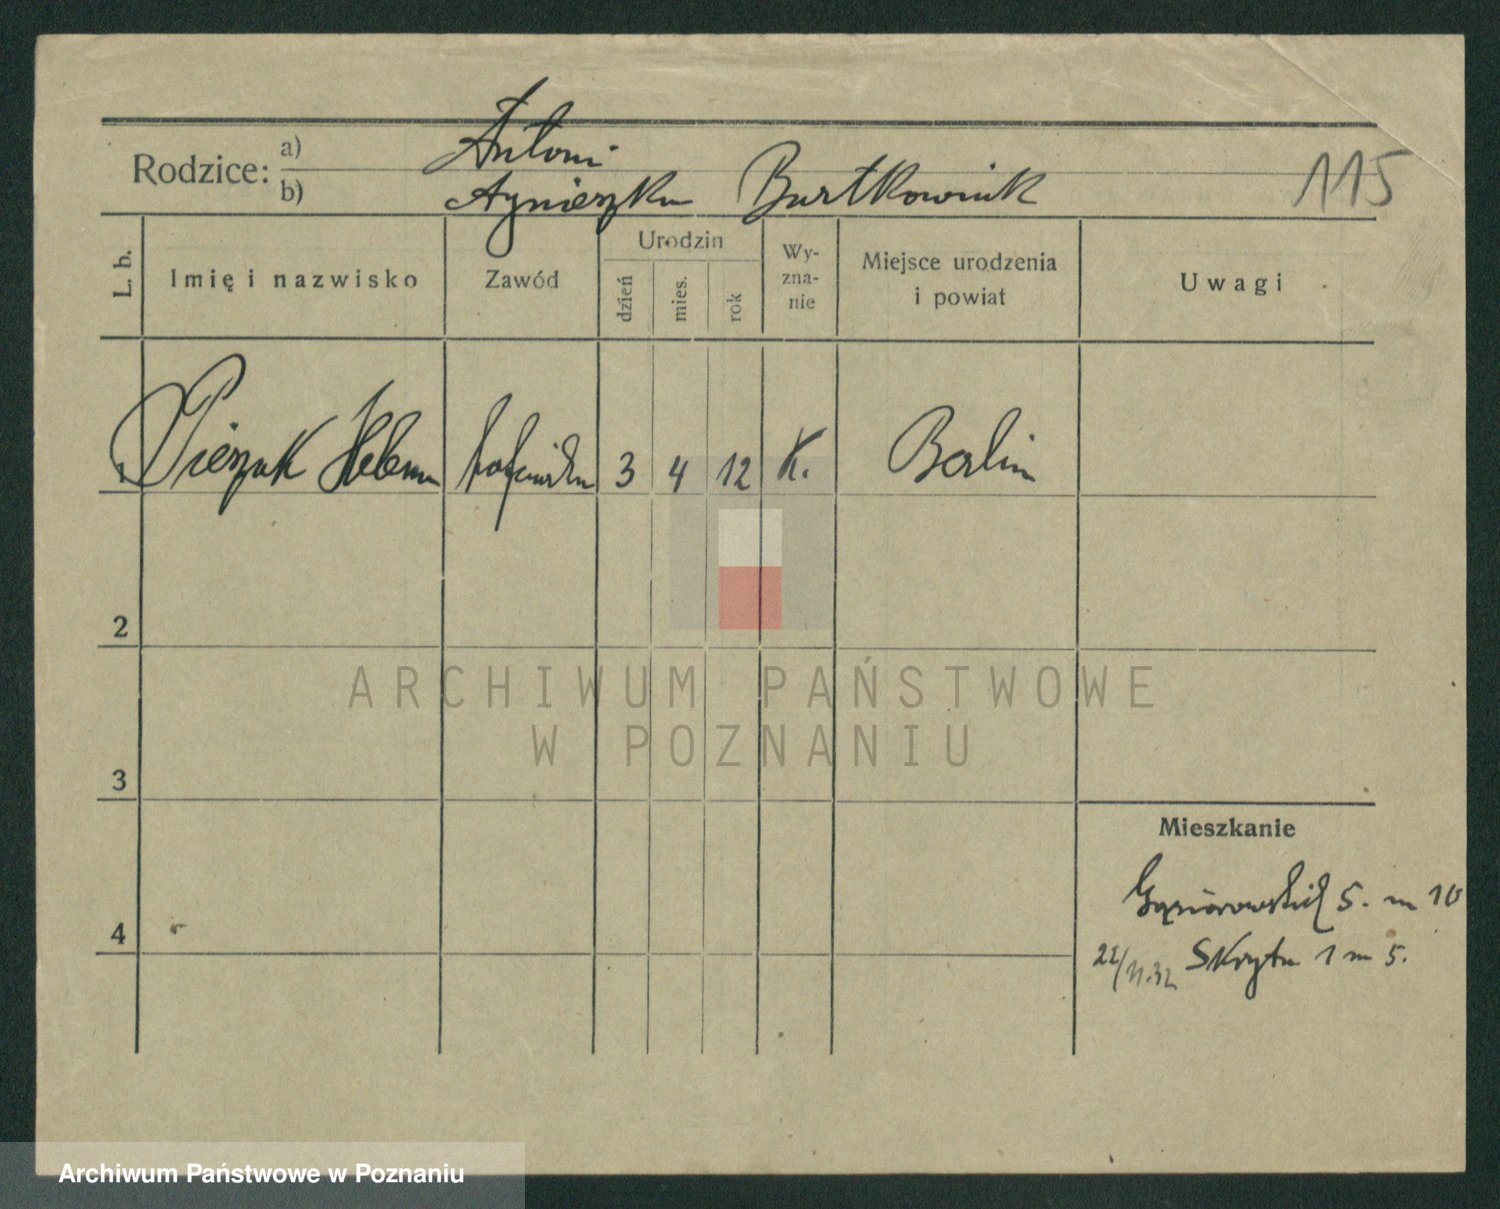 Rodzice: a) Antoni
b) Agnieszka Bartkowiak
115
L. b. Imię i nazwisko Zawód Urodzin dzień mies. rok Wy-zna-nie Miejsce urodzenia i powiat Uwagi
1 Pieszak Helena 3 4 12 K. Berlin
2
3
Mieszkanie
4
Gąsiorowskich 5. m 10
22/11.32 Skryta 1 m 5.
ARCHIWUM PAŃSTWOWE
W POZNANIU
Archiwum Państwowe w Poznaniu